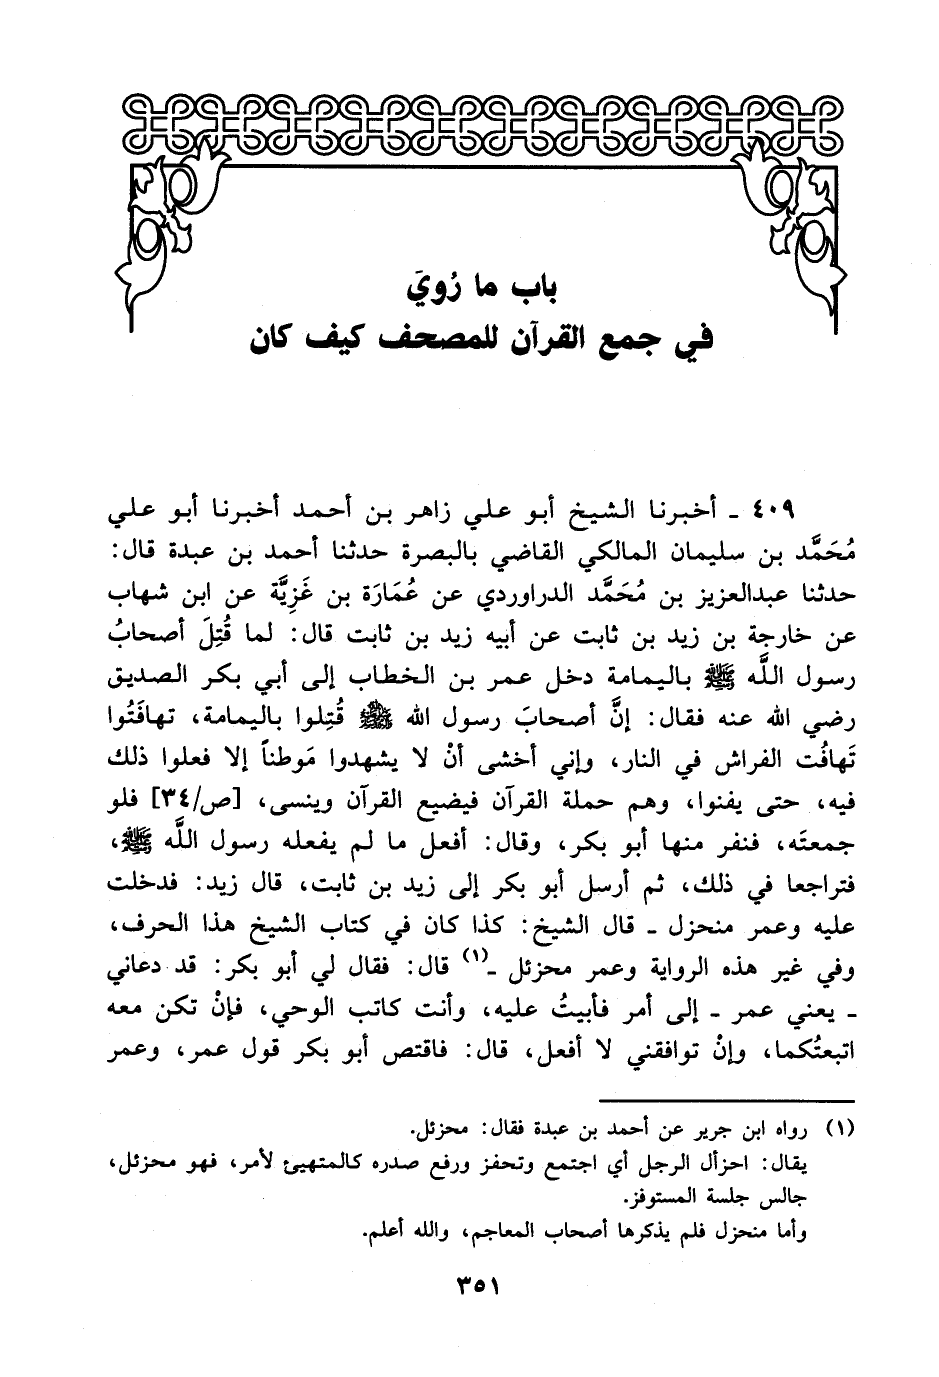 باب ما رُويَ
في جمع القرآن للمصحف كيف كان
٤٠٩ ـ أخبرنا الشيخ أبو علي زاهر بن أحمد أخبرنا أبو علي
مُحَمَّد بن سليمان المالكي القاضي بالبصرة حدثنا أحمد بن عبدة قال:
حدثنا عبدالعزيز بن مُحَمَّد الدراوردي عن عُمَارَة بن غَزِيَّة عن ابن شهاب
عن خارجة بن زيد بن ثابت عن أبيه زيد بن ثابت قال: لما قُتِلَ أصحابُ
رسول اللَّه ﷺ باليمامة دخل عمر بن الخطاب إلى أبي بكر الصديق
رضي الله عنه فقال: إنَّ أصحابَ رسول الله ﷺ قُتِلوا باليمامة، تهافَتُوا
تَهافُت الفراش في النار، وإني أخشى أنْ لا يشهدوا مَوطناً إلا فعلوا ذلك
فيه، حتى يفنوا، وهم حملة القرآن فيضيع القرآن وينسى، [ص/٣٤] فلو
جمعتَه، فنفر منها أبو بكر، وقال: أفعل ما لم يفعله رسول اللَّه ﷺ،
فتراجعا في ذلك، ثم أرسل أبو بكر إلى زيد بن ثابت، قال زيد: فدخلت
عليه وعمر منحزل ـ قال الشيخ: كذا كان في كتاب الشيخ هذا الحرف،
وفي غير هذه الرواية وعمر محزئل ـ(١) قال: فقال لي أبو بكر: قد دعاني
ـ يعني عمر ـ إلى أمر فأبيتُ عليه، وأنت كاتب الوحي، فإنْ تكن معه
اتبعتُكما، وإنْ توافقني لا أفعل، قال: فاقتص أبو بكر قول عمر، وعمر
(١) رواه ابن جرير عن أحمد بن عبدة فقال: محزئل.
يقال: احزأل الرجل أي اجتمع وتحفز ورفع صدره كالمتهيئ لأمر، فهو محزئل،
جالس جلسة المستوفز.
وأما منحزل فلم يذكرها أصحاب المعاجم، والله أعلم.
٣٥١